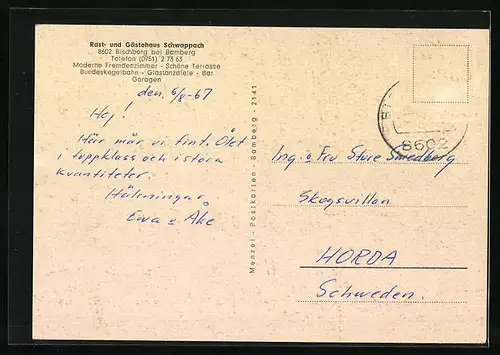 Rast- und Gästehaus Schwappach
8602 Bischberg bei Bamberg
Telefon (0951) 2 73 63
Moderne Fremdenzimmer - Schöne Terrasse
Bundeskegelbahn - Glastanzdiele - Bar
Garagen
den 6/8-67
Hej!
Här mår vi fint. Ölet
i toppklass och i stora
kvantiteter.
Hälsningar
Ewa o Åke
Menzel-Postkarten - Bamberg - 2141
8602
Ing. o Fru Sture Smedberg
Skogsvillan
HORDA
Schweden.